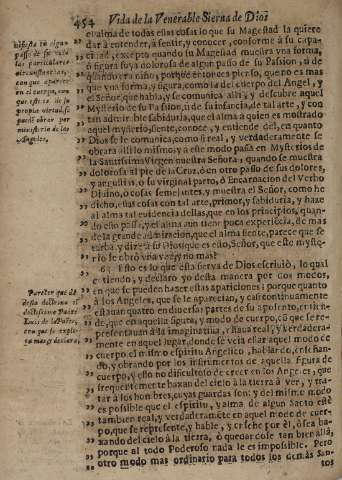 454 Vida de la Venerable Sierva de Dios
el alma de todas estas cosas lo que su Magestad la quiere
dar à entender, à sentir, y conocer, conforme à su capa-
cidad, excepto quando su Magestad muestra vna forma,
ò figura suya dolorosa de algun passo de su Passion, ù de
quando era Niño, porque entonces pienso, que no es mas
que vna forma, y figura, como la del cuerpo del Angel, y
el Señor, que habla, y se comunica alli, y descubre aquel
Mysterio de su Passion, ù de su infancia, de tal arte, y con
tan admirable sabiduria, que el alma à quien es mostrado
aquel mysterio, siente, conoce, y entiende del, en quanto
Dios se le comunica, como si real, y verdaderamente se
obrara alli lo mismo; y à este modo passa en Mysterios de
la Santissima Virgen nuestra Señora, quando se muestra
dolorosa al pie de la Cruz, ò en otro passo de sus dolores,
y angustias, ò su virginal parto, ò Encarnacion del Verbo
Divino, ò cosas semejantes, y muestra el Señor, como he
dicho, estas cosas con tal arte, primor, y sabiduria, y haze
al alma tal evidencia dellas, que en los principios, quan-
do esto passa, y el alma aun tiene poca experiencia, de mas
de la grande admiracion, que el alma siente, parece que se
turba, y dize à su Dios: que es esto, Señor, que este myste-
rio se obrò vna vez, y no mas?
Esto es lo que esta sierva de Dios escriviò, lo qual
entiendo, y declaro yo desta manera por dos modos,
en que se pueden hazer estas apariciones: porque quanto
à los Angeles, que se le aparecian, y casi continuamente
estauan quatro en diversas partes de su aposento, enti-
de, que en aquella figura, y modo de cuerpo, ò que se re-
presentauan à la imaginatiua, estaua real, y verdadera-
mente en aquel lugar, donde se veìa estar aquel modo de
cuerpo el mismo espiritu Angelico, hablando, enseñan-
do, y obrando por los instrumentos de aquella figura de
cuerpo, y ello no dificultoso de creer en los Angeles, que
frequentemente baxan del cielo à la tierra à ver, y tra-
tar à los hombres, cuyas guardas son: y del mismo modo
es possible que el espiritu, y alma de algun Santo estè
tambien real, y verdaderamente en aquel modo de cuer-
po, que se representa, y hable, y enseñe por èl, ò sea ba-
xando del cielo à la tierra, ò quedandose tan bien allà,
porque al todo Poderoso nada le es impossible. Pero
otro modo mas ordinario para todos los demàs San-
tos
en algun
passo de su vida
las particulares
circunstancias,
en el cuerpo, con
propia virtud, ò
puede obrar por
ministerio de los
Angeles.
Parecer que dà
desta doctrina el
doctissimo Padre
Luis de la Puente,
en que se expli-
ca mas, y declara.